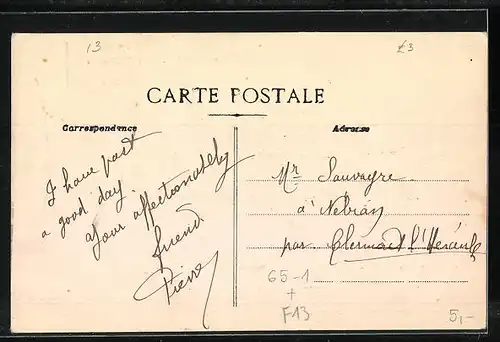 13
£3
CARTE POSTALE
Correspondance
Adresse
I have past
a good day.
Your affectionately
friend.
Pierre
Mr Sauvayre
à Nebian
par Clermont l'Hérault
65-1
+
F13
5,-